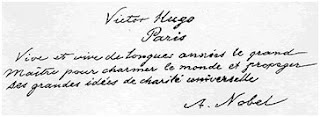 Victor Hugo
Paris
Vive et vive de longues années le grand
Maître pour charmer le monde et propager
ses grandes idées de charité universelle
A. Nobel